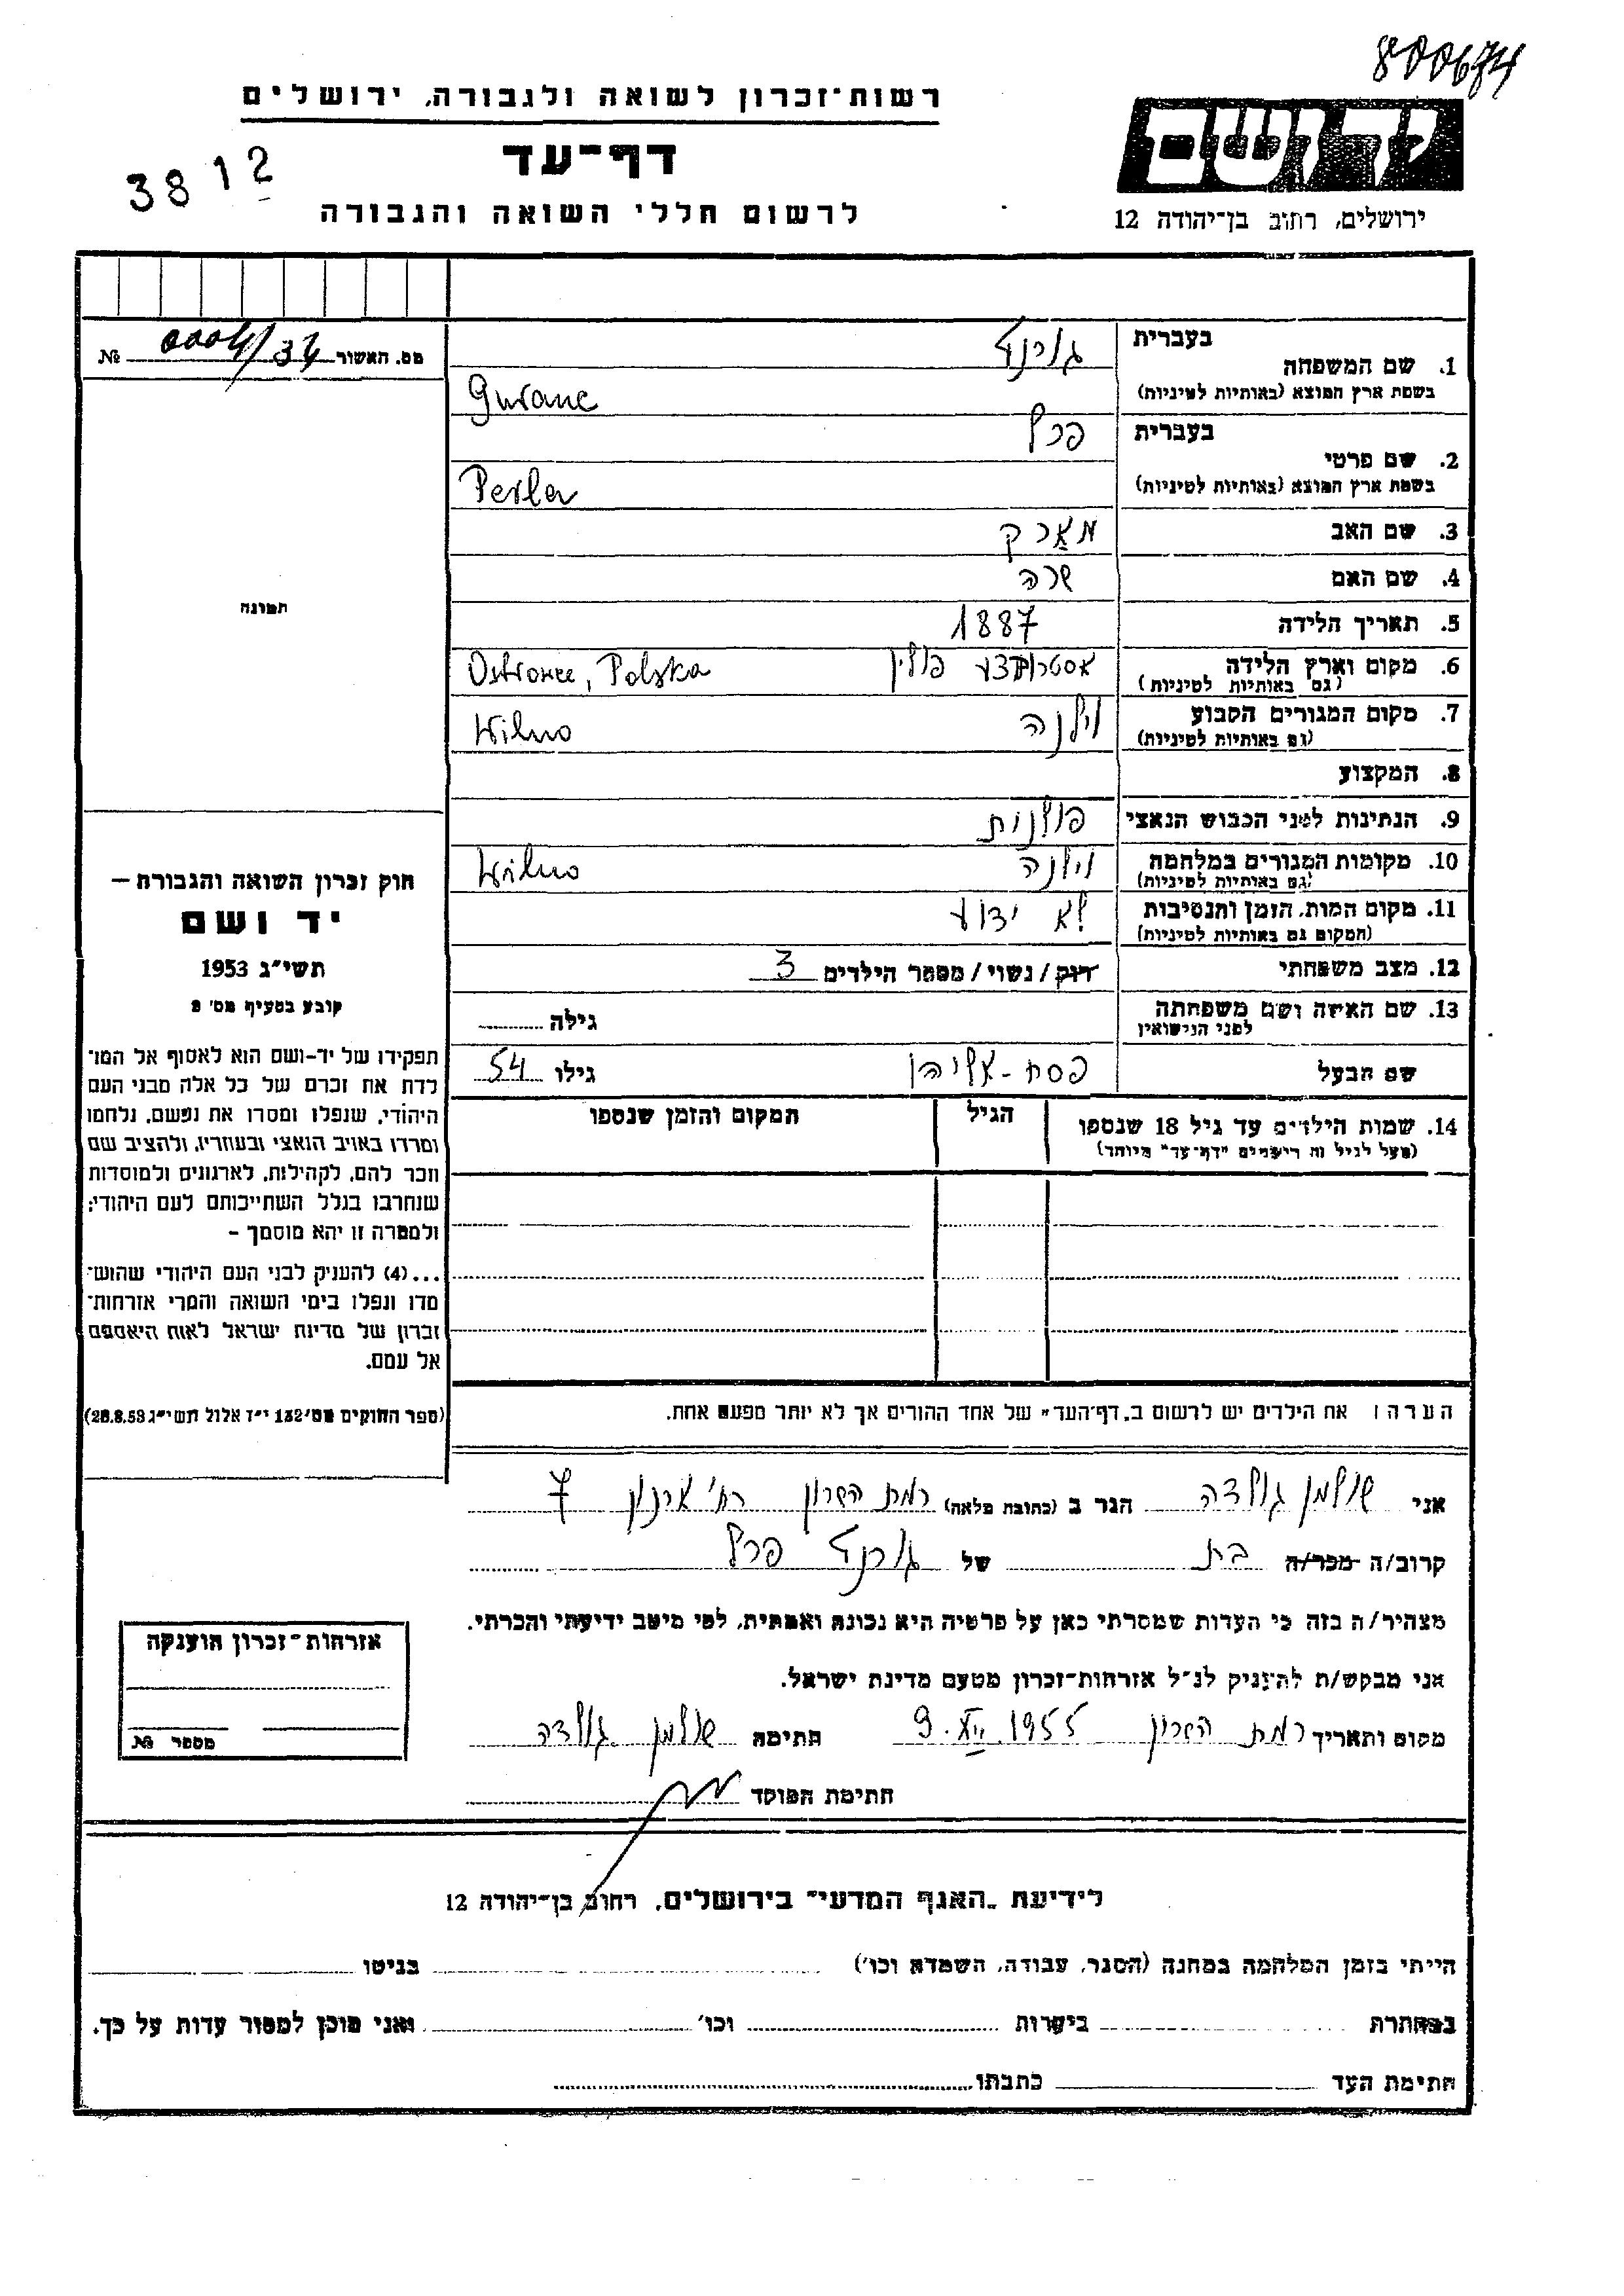 800674
רשות־זכרון לשואה ולגבורה, ירושלים
דף־עד
3812
לרשום חללי השואה והגבורה
יד ושם
ירושלים, רחוב בן־יהודה 12
מס. האשור 0004/34 №
בעברית
1. שם המשפחה
בשפת ארץ המוצא (באותיות לטיניות) Gurane
בעברית
2. שם פרטי פרל
בשפת ארץ המוצא (באותיות לטיניות) Perla
3. שם האב מארק
4. שם האם שרה
5. תאריך הלידה 1887
6. מקום וארץ הלידה פולין Ostrowce, Polska
(גם באותיות לטיניות)
7. מקום המגורים הקבוע וילנה Wilno
(גם באותיות לטיניות)
8. המקצוע
9. הנתינות לפני הכבוש הנאצי פולנית
10. מקומות המגורים במלחמה וילנה Wilno
(גם באותיות לטיניות)
11. מקום המות, הזמן והנסיבות לא ידוע
(המקום גם באותיות לטיניות)
12. מצב משפחתי רוק / נשוי / מספר הילדים 3
13. שם האשה ושם משפחתה גילה
לפני הנישואין
שם הבעל פסח - אליהו גילו 54
14. שמות הילדים עד גיל 18 שנספו הגיל המקום והזמן שנספו
(מעל לגיל זה רושמים "דף־עד" מיוחד)
הערה: את הילדים יש לרשום ב„דף־העד" של אחד ההורים אך לא יותר מפעם אחת.
תמונה
חוק זכרון השואה והגבורה –
יד ושם
תשי"ג 1953
קובע בסעיף מס' 2
תפקידו של יד-ושם הוא לאסוף אל המו־
לדת את זכרם של כל אלה מבני העם
היהודי, שנפלו ומסרו את נפשם, נלחמו
ומרדו באויב הנאצי ובעוזריו, ולהציב שם
וזכר להם, לקהילות, לארגונים ולמוסדות
שנחרבו בגלל השתייכותם לעם היהודי;
ולמטרה זו יהא מוסמך –
...(4) להעניק לבני העם היהודי שהוש־
מדו ונפלו בימי השואה והמרי אזרחות־
זכרון של מדינת ישראל לאות היאספם
אל עמם.
(ספר החוקים מס' 132 י"ז אלול תשי"ג 28.8.53)
אני שולמן גולדה הגר ב (כתובת מלאה) רמת השרון רח' ארנון 7
קרוב/ה מכר/ה בת של פרל
מצהיר/ה בזה כי העדות שמסרתי כאן על פרטיה היא נכונה ואמתית, לפי מיטב ידיעתי והכרתי.
אני מבקש/ת להעניק לנ"ל אזרחות־זכרון מטעם מדינת ישראל.
מקום ותאריך רמת השרון 9.XII.1955 חתימה שולמן גולדה
חתימת הפוקד
אזרחות־זכרון הוענקה
מספר №
לידיעת „האגף המדעי" בירושלים, רחוב בן־יהודה 12
הייתי בזמן המלחמה במחנה (הסגר, עבודה, השמדה וכו') בגיטו
במחתרת ביערות וכו' ואני מוכן למסור עדות על כך.
חתימת העד כתבתו